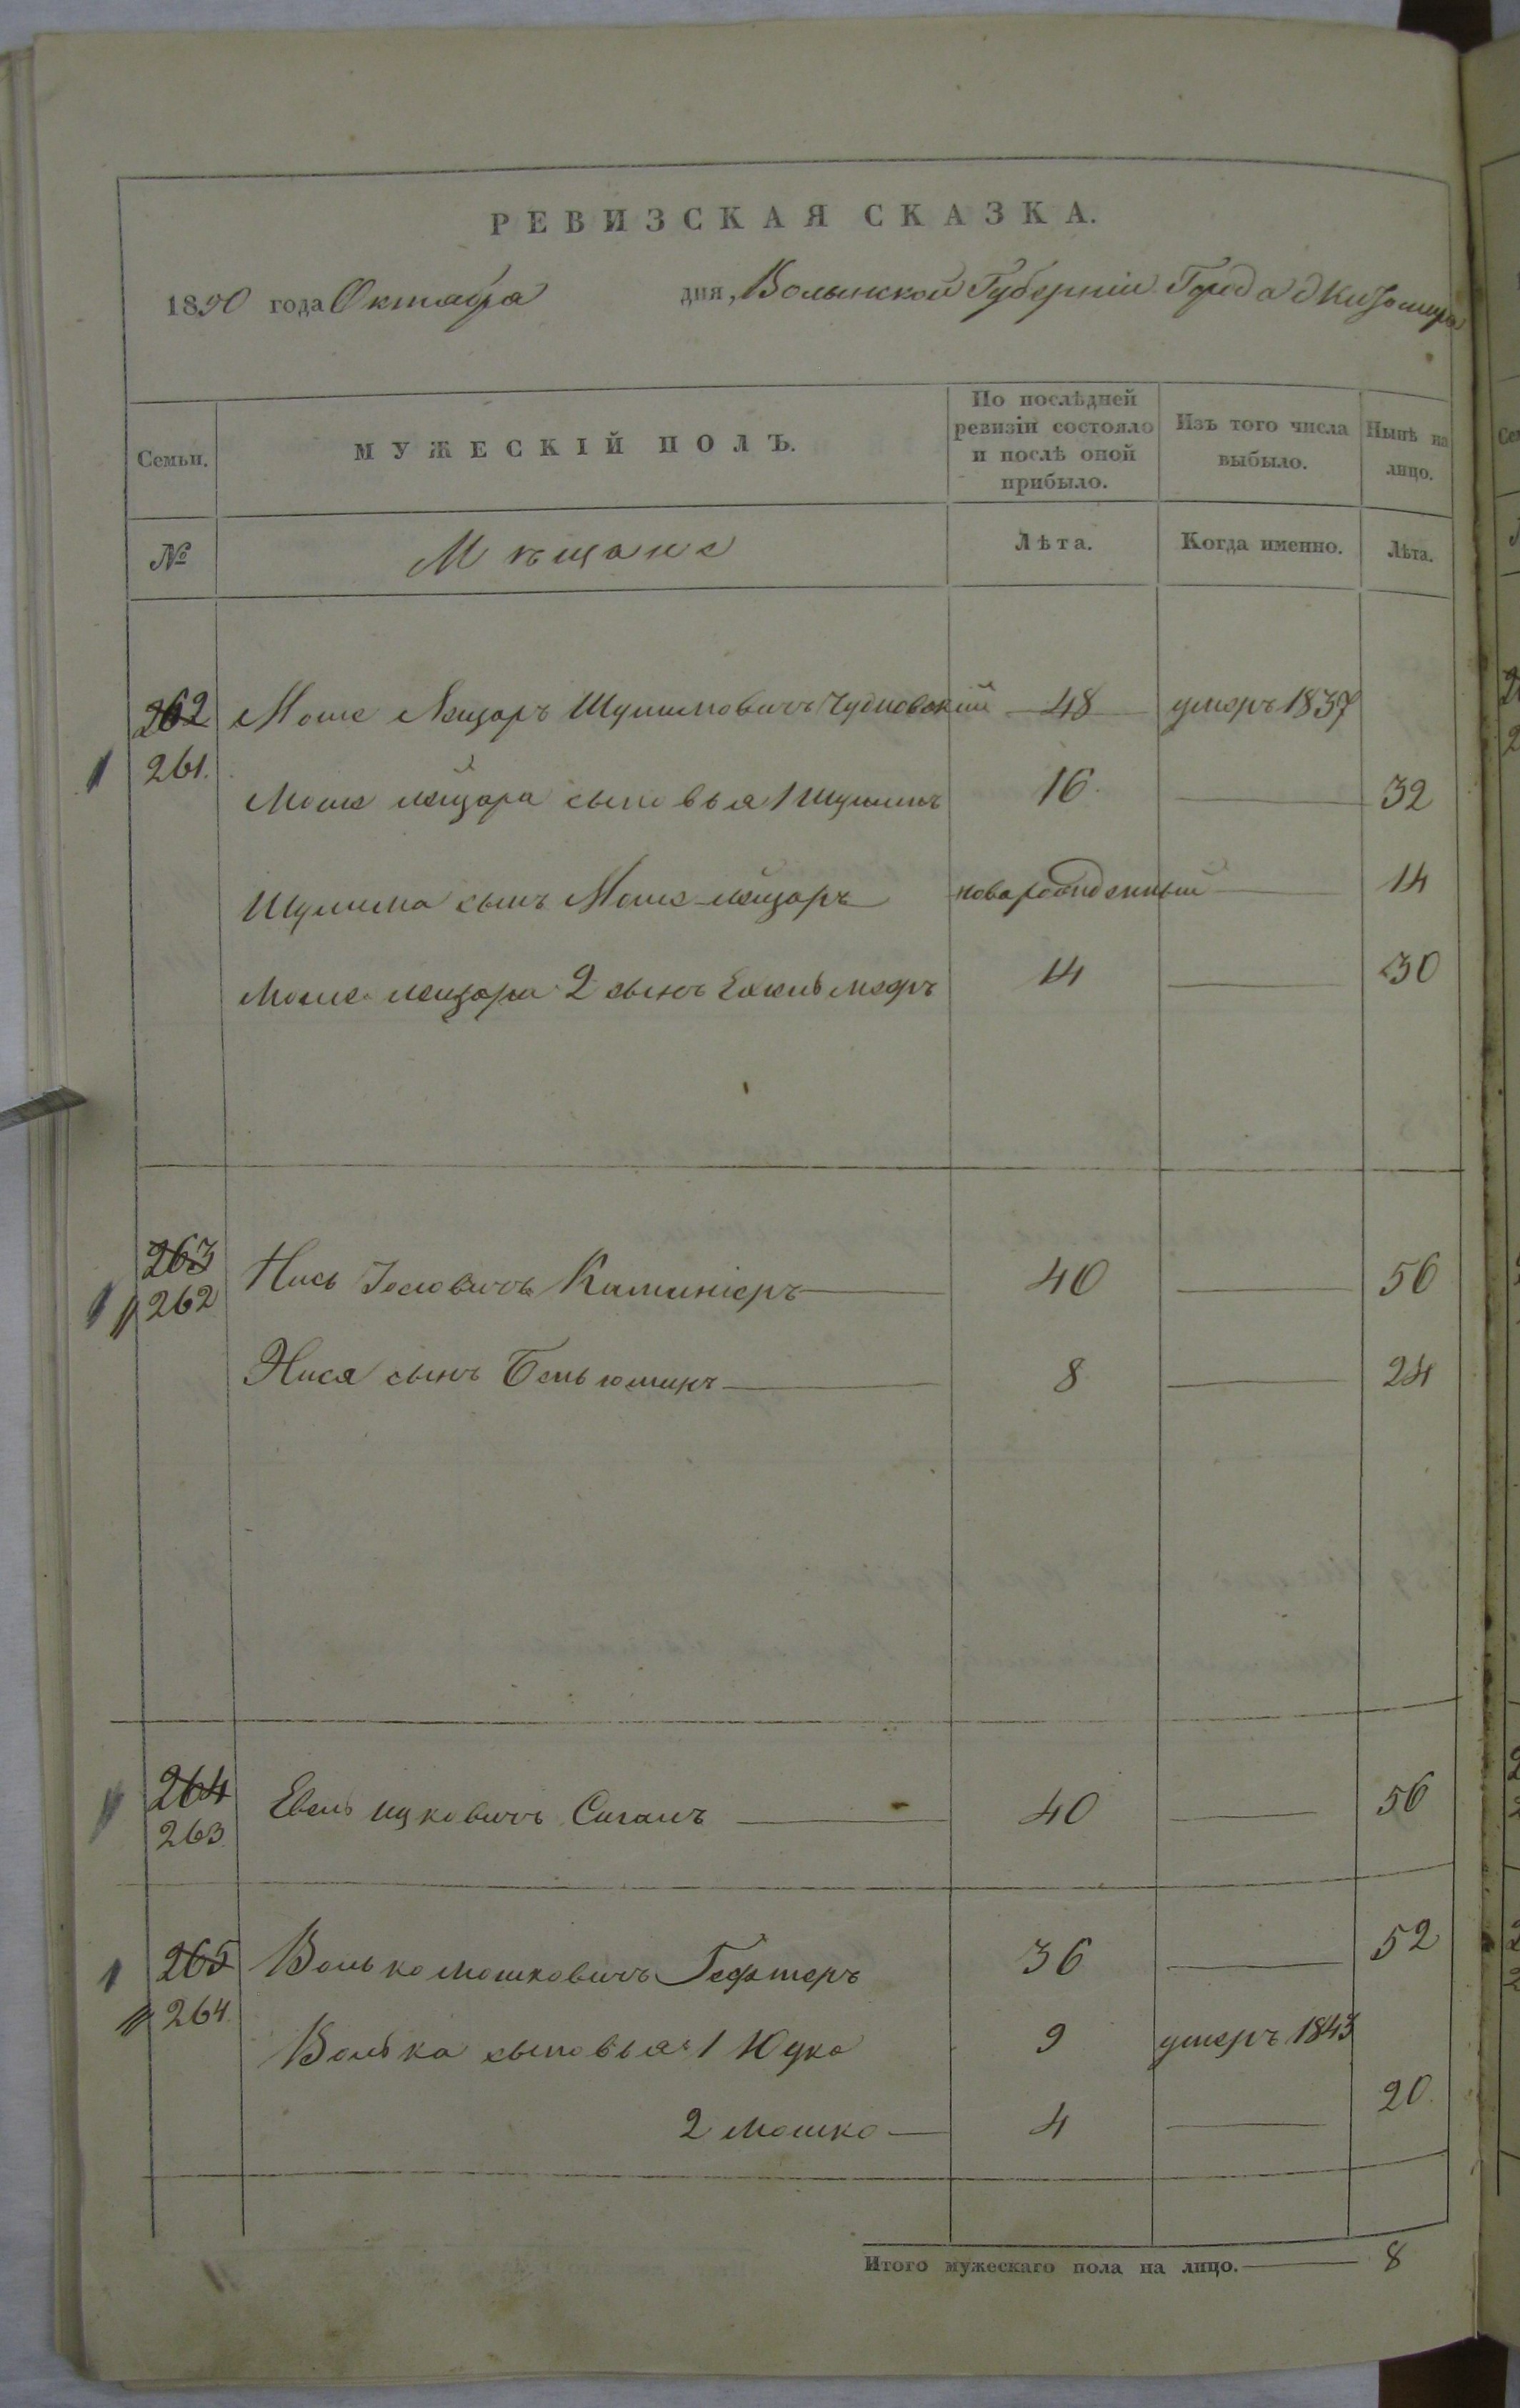 РЕВИЗСКАЯ СКАЗКА.
1850 года Октября дня, Волынской Губерніи Города Житомира
Семьи. МУЖЕСКІЙ ПОЛЪ. По послѣдней ревизіи состояло и послѣ оной прибыло. Изъ того числа выбыло. Нынѣ на лицо.
№ Мѣщане Лѣта. Когда именно. Лѣта.
262 Моше Лейзаръ Шулимовичъ Чудновский 48 умеръ 1837
261. Моше лейзара сыновья 1 Шулимъ 16 32
Шулима сынъ Моше-лейзаръ новарожденный 14
Моше лейзара 2 сынъ 14 30
263 Нись Іосіовичъ 40 56
262
Нися сынъ Беньюминъ 8 24
264 Евель ицковичъ Сиганъ 40 56
263
265 Волько мошковичъ Гефтеръ 36 52
264. Волька сыновья 1 Юдко 9 умеръ 1843
2 Мошко 4 20.
Итого мужескаго пола на лицо. 8